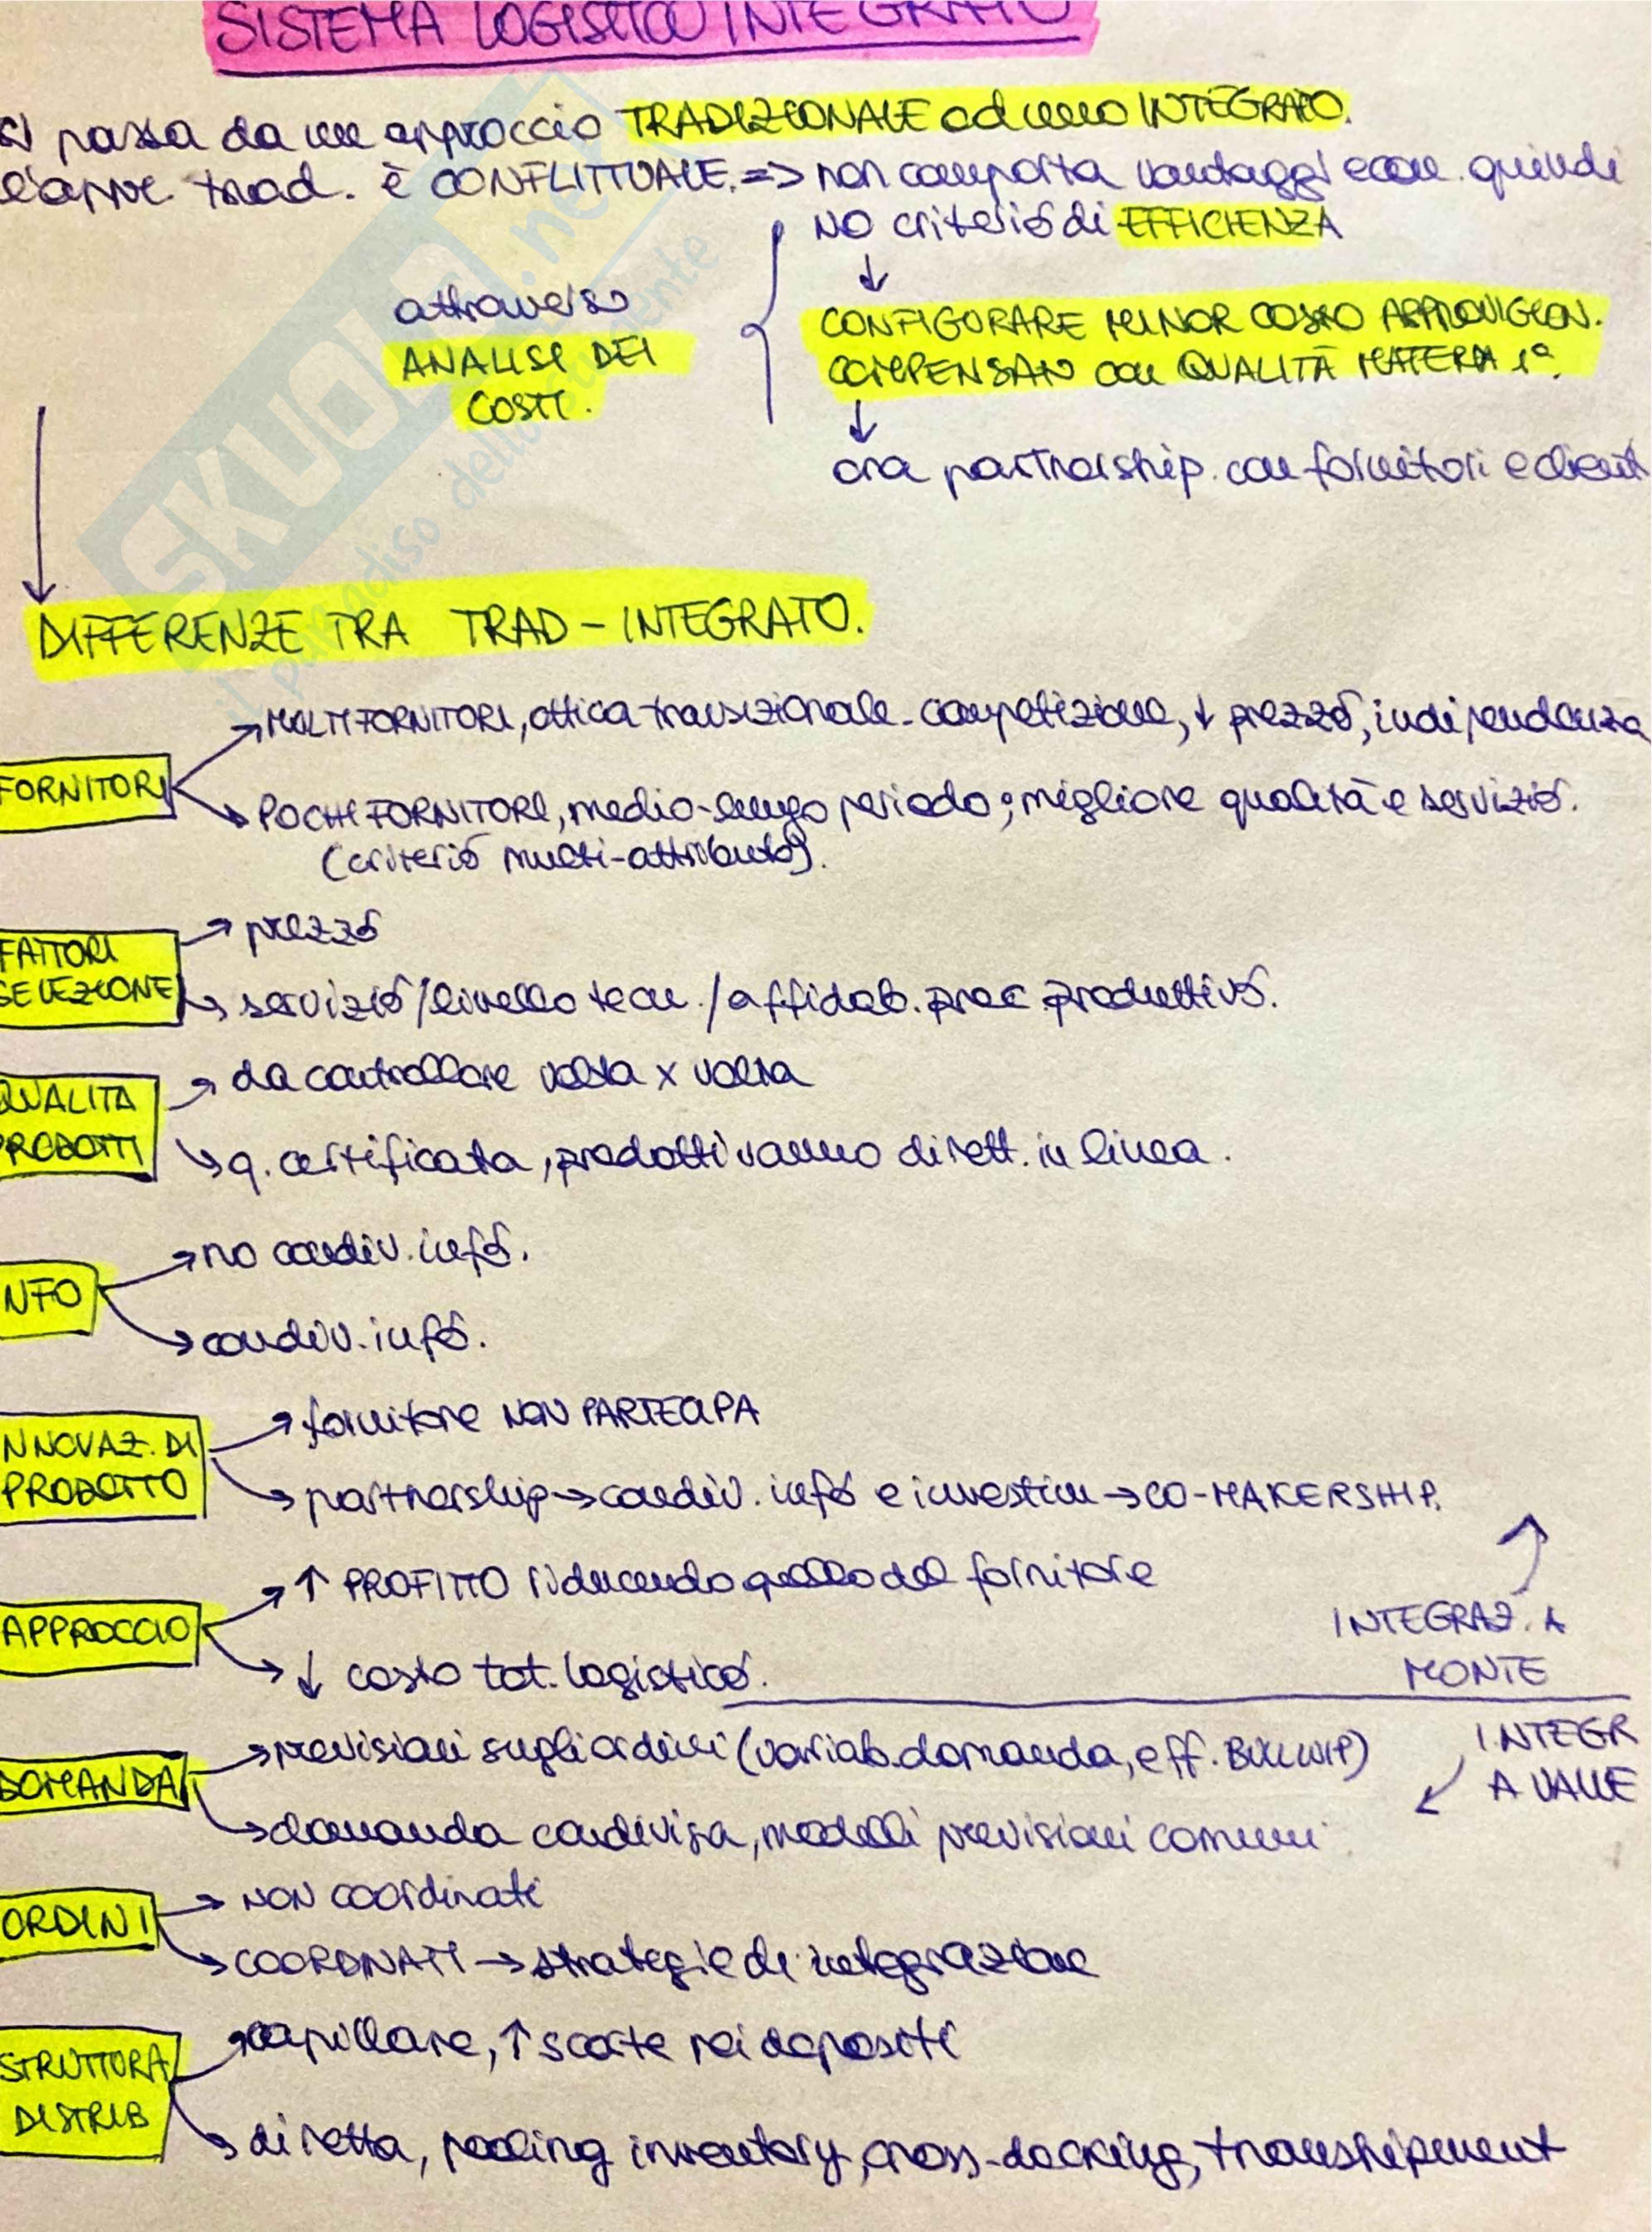 SISTEMA LOGISTICO INTEGRATO
Si passa da un approccio TRADIZIONALE ad uno INTEGRATO.
l'appr. trad. è CONFLITTUALE. => non comporta vantaggi econ. quindi
NO criterio di EFFICIENZA
↓
attraverso
ANALISI DEI
COSTI.
CONFIGURARE MINOR COSTO APPROVIGION.
COMPENSAN con QUALITÀ MATERIA 1ª.
↓
ora partnership. con fornitori e client
DIFFERENZE TRA TRAD - INTEGRATO.
FORNITORI
→ MULTI FORNITORI, ottica transizionale - competizione, ↓ prezzo, indipendenza
→ POCHI FORNITORI, medio-lungo periodo; migliore qualità e servizio.
(criterio multi-attributo).
FATTORI
SELEZIONE
→ prezzo
→ servizio/livello tecn./affidab. proc. produttivo.
QUALITA
PRODOTTI
→ da controllare volta x volta
→ q. certificata, prodotti vanno dirett. in linea.
NFO
→ no condiv. info.
→ condiv. info.
NNOVAZ. DI
PRODOTTO
→ fornitore NON PARTECIPA
→ partnership → condiv. info e investim → CO-MAKERSHIP.
APPROCCIO
→ ↑ PROFITTO riducendo quello del fornitore
→ ↓ costo tot. logistico.
INTEGRAZ. A
MONTE
INTEGR
A VALLE
DOMANDA
→ previsioni sugli ordini (variab. domanda, eff. BULLWIP)
→ domanda condivisa, modelli previsioni comuni
ORDINI
→ NON coordinati
→ COORDINATI → strategie di integrazione
STRUTTURA
DISTRIB
→ capillare, ↑ scorte nei depositi
→ diretta, pooling inventory, cross-docking, transhipment
SKUOLA.net
il paradiso dello studente